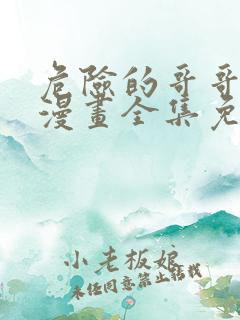 危險的哥哥
漫畫全集免
小老板娘
未任同意禁止转找